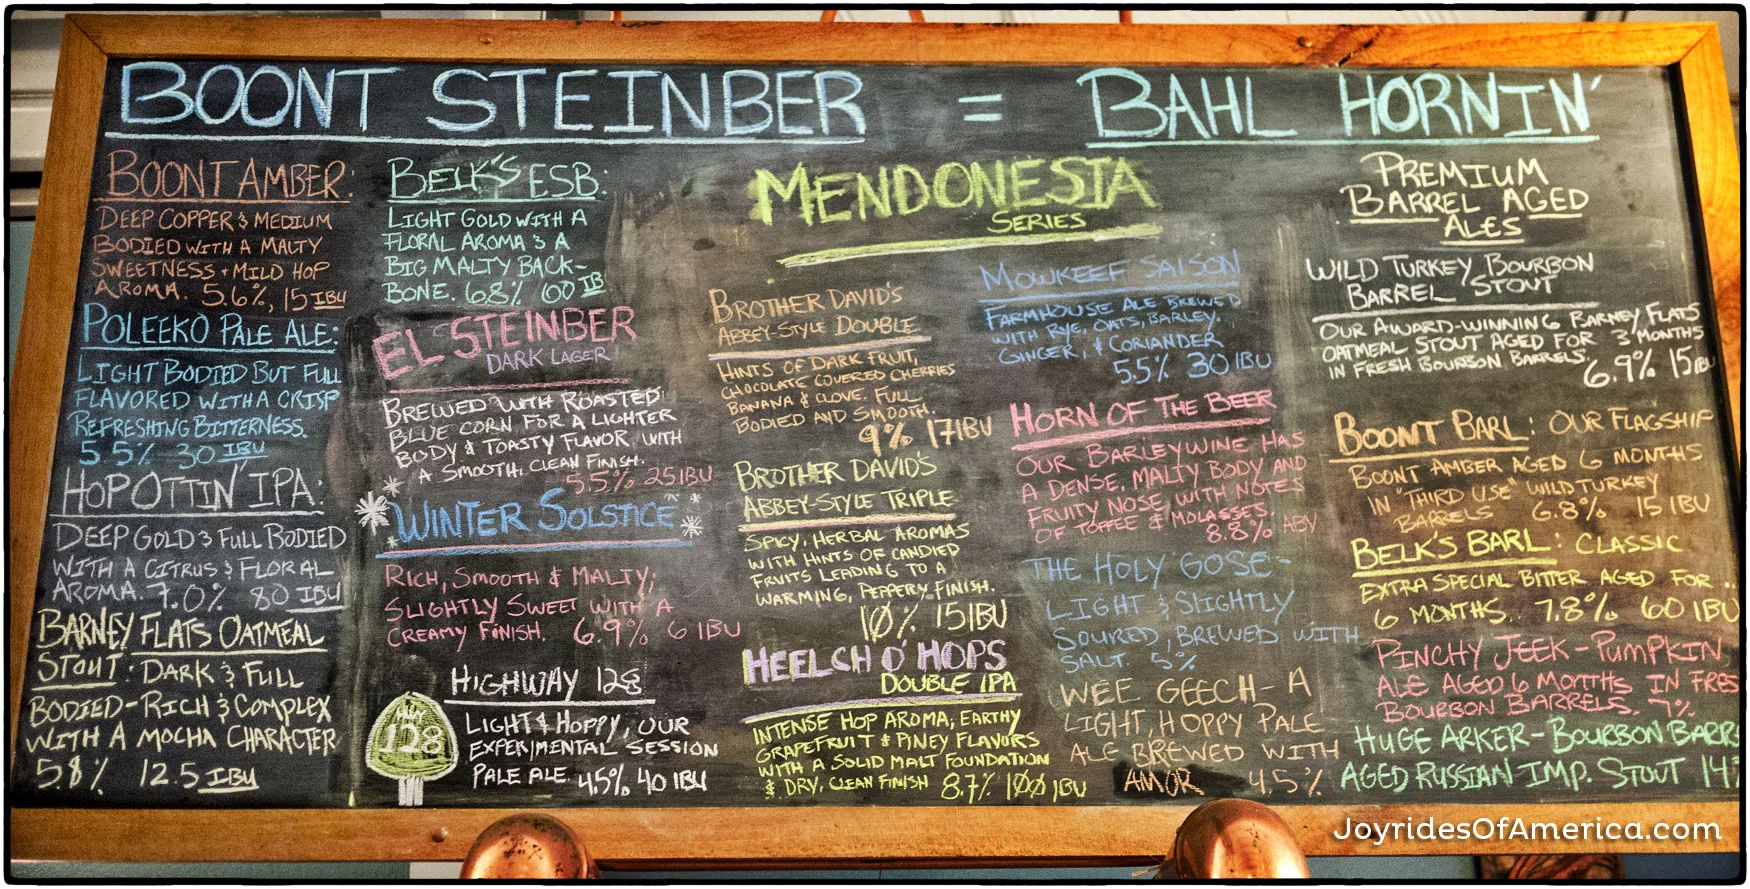 BOONT STEINBER = BAHL HORNIN'
BOONT AMBER:
DEEP COPPER & MEDIUM
BODIED WITH A MALTY
SWEETNESS + MILD HOP
AROMA. 5.6%, 15 IBU
POLEEKO PALE ALE:
LIGHT BODIED BUT FULL
FLAVORED WITH A CRISP
REFRESHING BITTERNESS.
5.5% 30 IBU
HOP OTTIN' IPA:
DEEP GOLD & FULL BODIED
WITH A CITRUS & FLORAL
AROMA. 7.0% 80 IBU
BARNEY FLATS OATMEAL
STOUT: DARK & FULL
BODIED-RICH & COMPLEX
WITH A MOCHA CHARACTER
5.8% 12.5 IBU
BELK'S ESB:
LIGHT GOLD WITH A
FLORAL AROMA & A
BIG MALTY BACK-
BONE. 6.8% 60 IB
EL STEINBER
DARK LAGER
BREWED WITH ROASTED
BLUE CORN FOR A LIGHTER
BODY & TOASTY FLAVOR, WITH
A SMOOTH, CLEAN FINISH.
5.5% 25 IBU
WINTER SOLSTICE
RICH, SMOOTH & MALTY;
SLIGHTLY SWEET WITH A
CREAMY FINISH. 6.9% 6 IBU
HIGHWAY 128
HWY
128
LIGHT & HOPPY, OUR
EXPERIMENTAL SESSION
PALE ALE 4.5% 40 IBU
MENDONESIA
SERIES
BROTHER DAVID'S
ABBEY-STYLE DOUBLE
HINTS OF DARK FRUIT,
CHOCOLATE COVERED CHERRIES
BANANA & CLOVE. FULL
BODIED AND SMOOTH.
9% 17 IBU
BROTHER DAVID'S
ABBEY-STYLE TRIPLE
SPICY, HERBAL AROMAS
WITH HINTS OF CANDIED
FRUITS LEADING TO A
WARMING, PEPPERY FINISH.
10% 15 IBU
HEELCH O' HOPS
DOUBLE IPA
INTENSE HOP AROMA, EARTHY
GRAPEFRUIT & PINEY FLAVORS
WITH A SOLID MALT FOUNDATION
& DRY, CLEAN FINISH 8.7% 100 IBU
MOWKEEF SAISON
FARMHOUSE ALE BREWED
WITH RYE, OATS, BARLEY,
GINGER, & CORIANDER
5.5% 30 IBU
HORN OF THE BEER
OUR BARLEYWINE HAS
A DENSE, MALTY BODY AND
FRUITY NOSE, WITH NOTES
OF TOFFEE & MOLASSES.
8.8% ABV
THE HOLY GOSE-
LIGHT & SLIGHTLY
SOURED, BREWED WITH
SALT. 5%
WEE GEECH- A
LIGHT, HOPPY PALE
ALE BREWED WITH
AMOR 4.5%
PREMIUM
BARREL AGED
ALES
WILD TURKEY BOURBON
BARREL STOUT
OUR AWARD-WINNING BARNEY FLATS
OATMEAL STOUT AGED FOR 3 MONTHS
IN FRESH BOURBON BARRELS.
6.9% 15 IBU
BOONT BARL: OUR FLAGSHIP
BOONT AMBER AGED 6 MONTHS
IN "THIRD USE" WILD TURKEY
BARRELS 6.8% 15 IBU
BELK'S BARL: CLASSIC
EXTRA SPECIAL BITTER AGED FOR
6 MONTHS. 7.8% 60 IBU
PINCHY JEEK-PUMPKIN
ALE AGED 6 MONTHS IN FRES
BOURBON BARRELS. 7%
HUGE ARKER-BOURBON BARR
AGED RUSSIAN IMP. STOUT 14
JoyridesOfAmerica.com